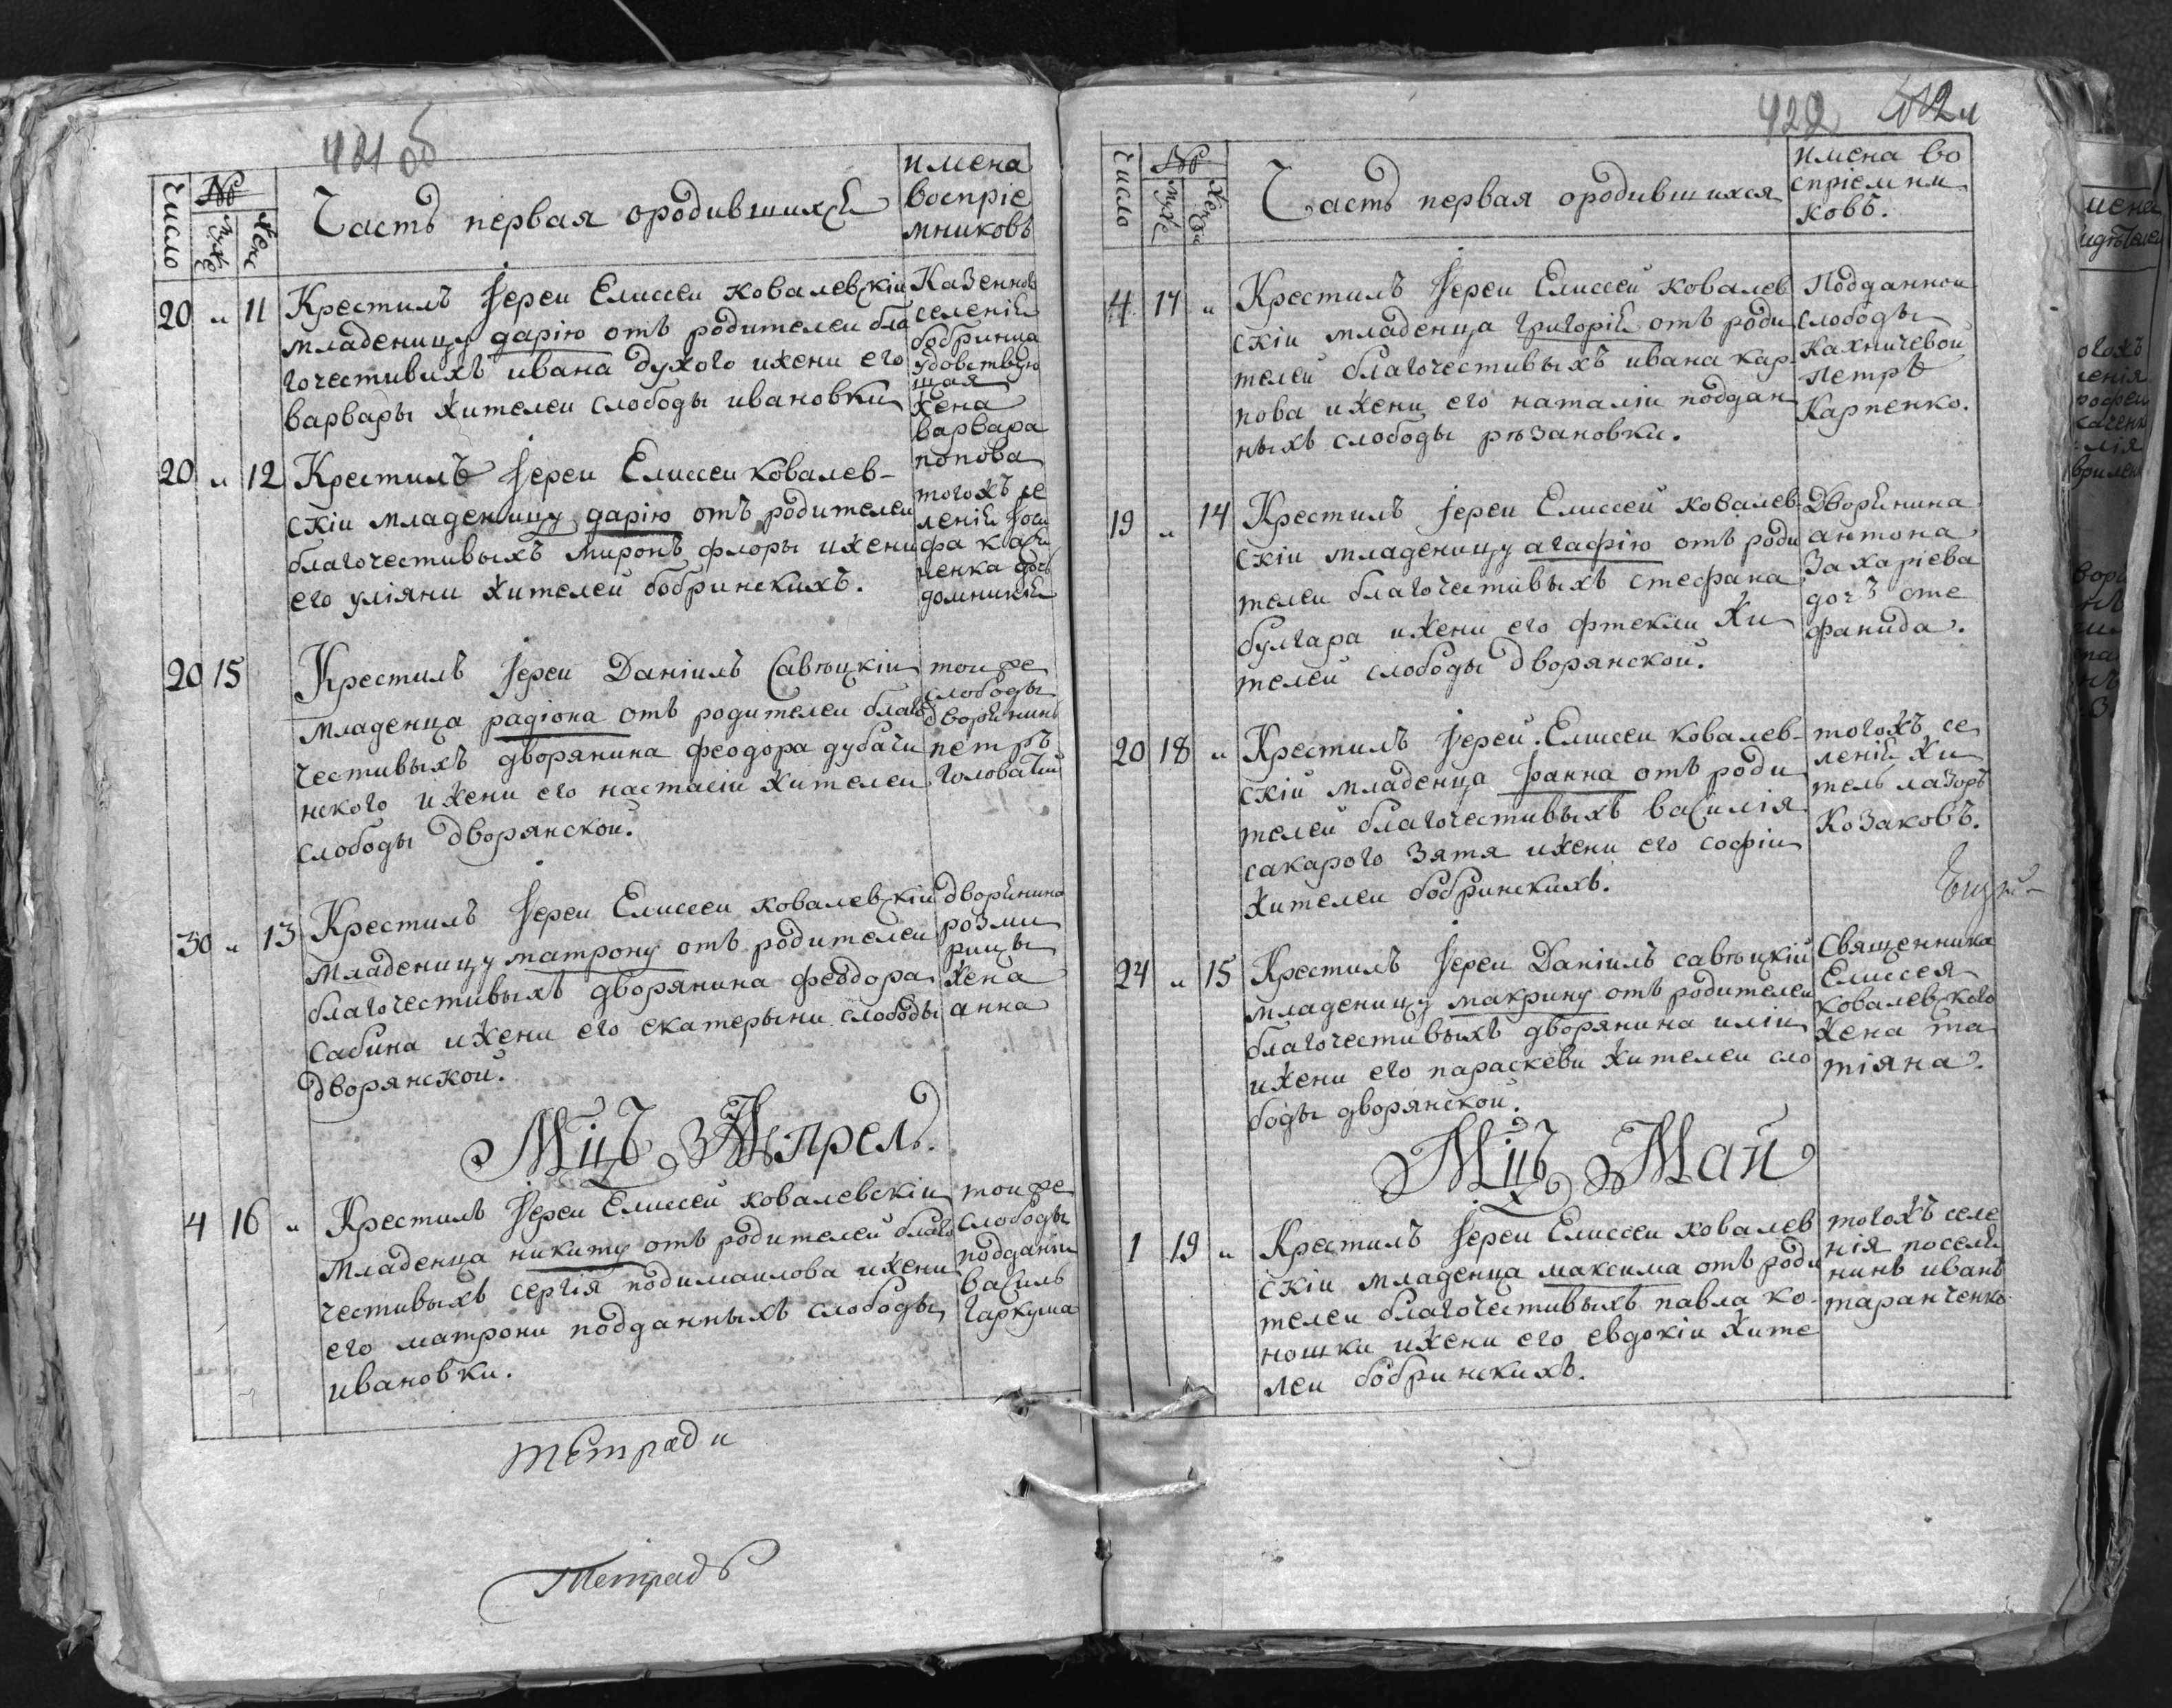 421 об
Число
№
муж
жен
Часть первая ородившихся
имена
воспріе
мниковъ
20 " 11
Крестилъ Іереи Елиссеи ковалевскіи
младеницу дарію отъ родителеи бла
гочестивихъ ивана духого ижени его
варвары жителеи слободы ивановки
Казенновъ
селенія
бобринца
удовствую
щая
жена
варвара
попова
20 " 12
Крестилъ Іереи Елиссеи ковалев-
скіи младеницу дарію отъ родителеи
благочестивыхъ миронъ флоры ижени
его уліяни жителей бобринскихъ.
тогожъ се
ленія Іоси
фа
ненка
домникія
20 15
Крестилъ Іереи Даніилъ Савѣцкіи
младенца радіона отъ родителеи благо
честивыхъ дворянина феодора дубачи
нского ижени его настасіи жителеи
слободы дворянской.
тои же
слободы
дворянинъ
петръ
Головатій
30 " 13
Крестилъ Іереи Елиссеи ковалевскіи
младеницу матрону отъ родителеи
благочестивыхъ дворянина феодора
Сабина ижени его екатерыни слободы
дворянскои.
дворянина
розми
рицы
жена
анна
Мцъ Апрель.
4 16 "
Крестилъ Іереи Елиссей ковалевскіи
младенца никиту отъ родителей благо
честивыхъ сергія подимаилова ижени
его матрони подданныхъ слободы
ивановки.
тои же
слободы
подданіи
василь
гаркуша
тетради
Тетрадь
422
Число
№
муж
жен
Часть первая ородившихся
имена во
спріемни
ковъ.
4 17 "
Крестилъ Іереи Елиссей ковалев
скіи младенца григорія отъ роди
телей благочестивыхъ ивана кар-
пова ижени его наталіи поддан
ныхъ слободы рѣзановки.
Подданнои
слободы
Кахничевой
Петръ
Карпенко.
19 " 14
Крестилъ Іереи Елиссей ковалев-
скіи младеницу агафію отъ роди
телеи благочестивыхъ стефана
булгара ижени его фтекли жи
телей слободы дворянской.
Дворянина
антона
Захаріева
дочъ сте
фанида.
20 18 "
Крестилъ Іерей Елиссеи ковалев-
скій младенца Іоанна отъ роди
телей благочестивыхъ василія
сакарого зятя ижени его софіи
жителеи бобринскихъ.
тогожъ се
ленія жи
тель лазоръ
Козаковъ.
24 " 15
Крестилъ Іереи Даніилъ савѣцкій
младеницу макрину отъ родителеи
благочестивыхъ дворянина иліи
ижени его параскеви жителеи сло
боды дворянской.
Священника
Елиссея
ковалевского
жена та
тіяна.
Мцъ Май
1 19 "
Крестилъ Іереи Елиссеи ковалев
скіи младенца максима отъ роди
телеи благочестивыхъ павла ко-
ношки ижени его евдокіи жите
леи бобринскихъ.
тогожъ селе
нія поселя
нинъ иванъ
таранченко.